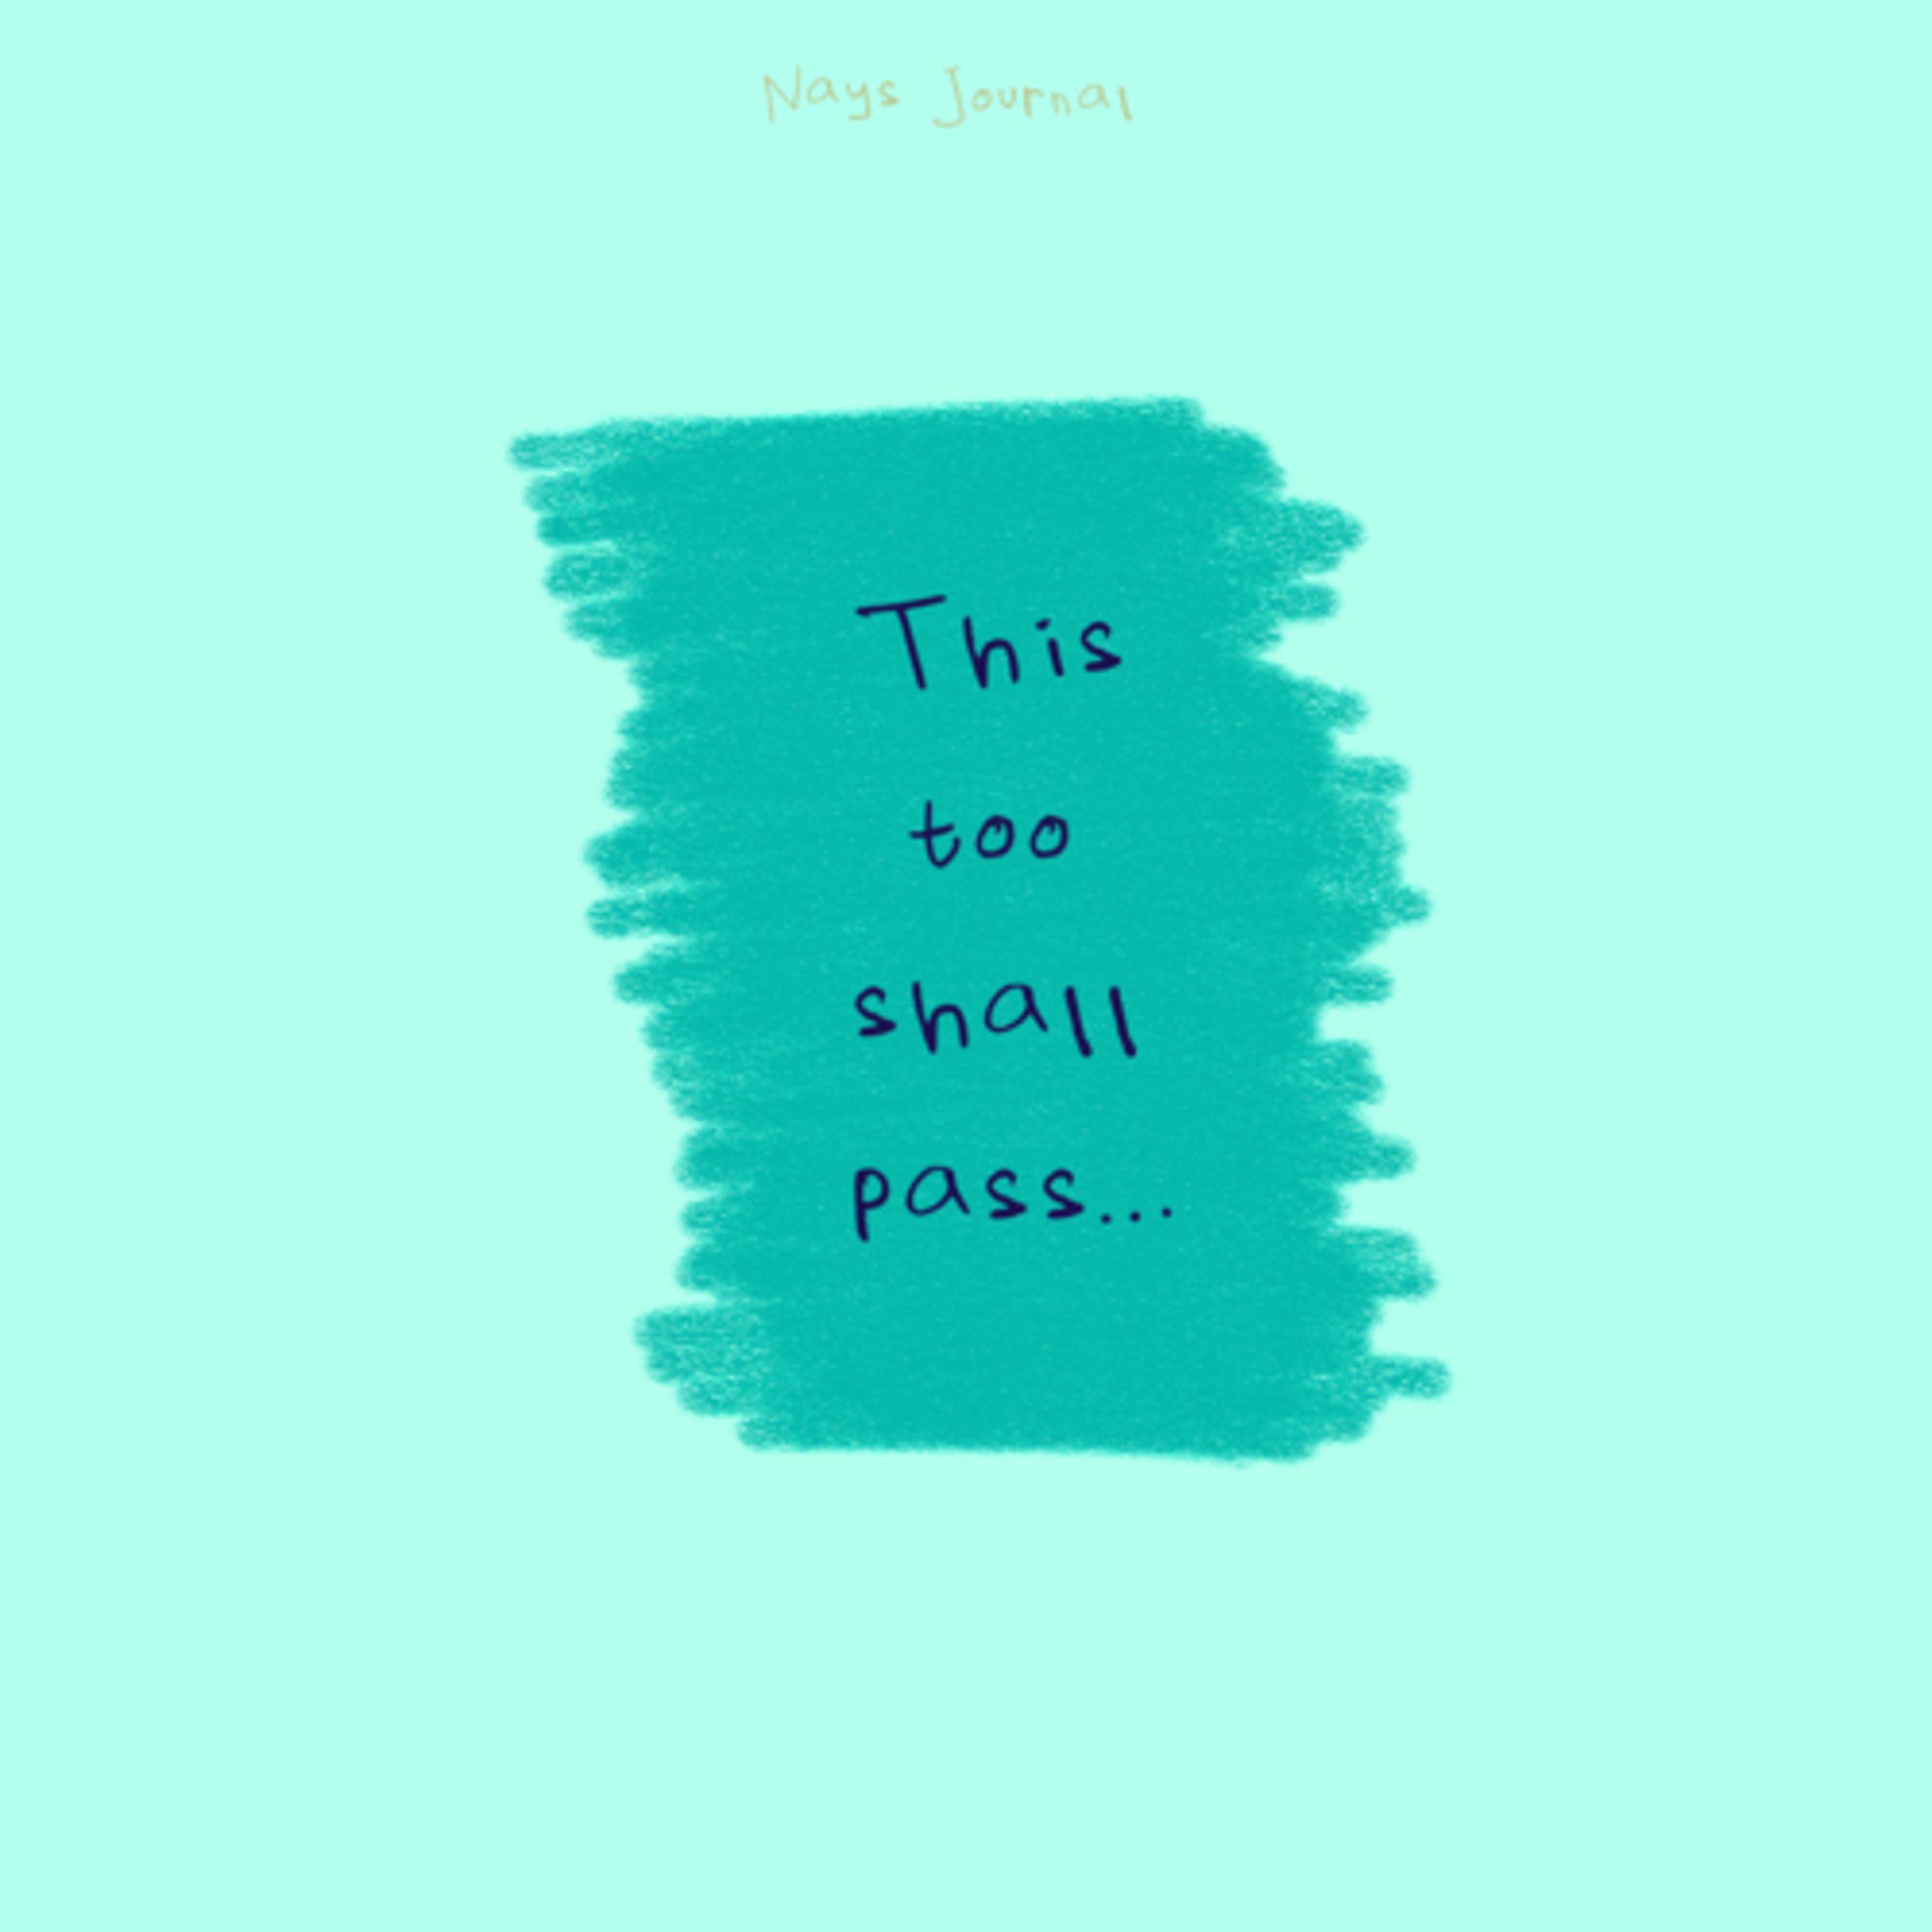 Nays Journal
This
too
shall
pass...